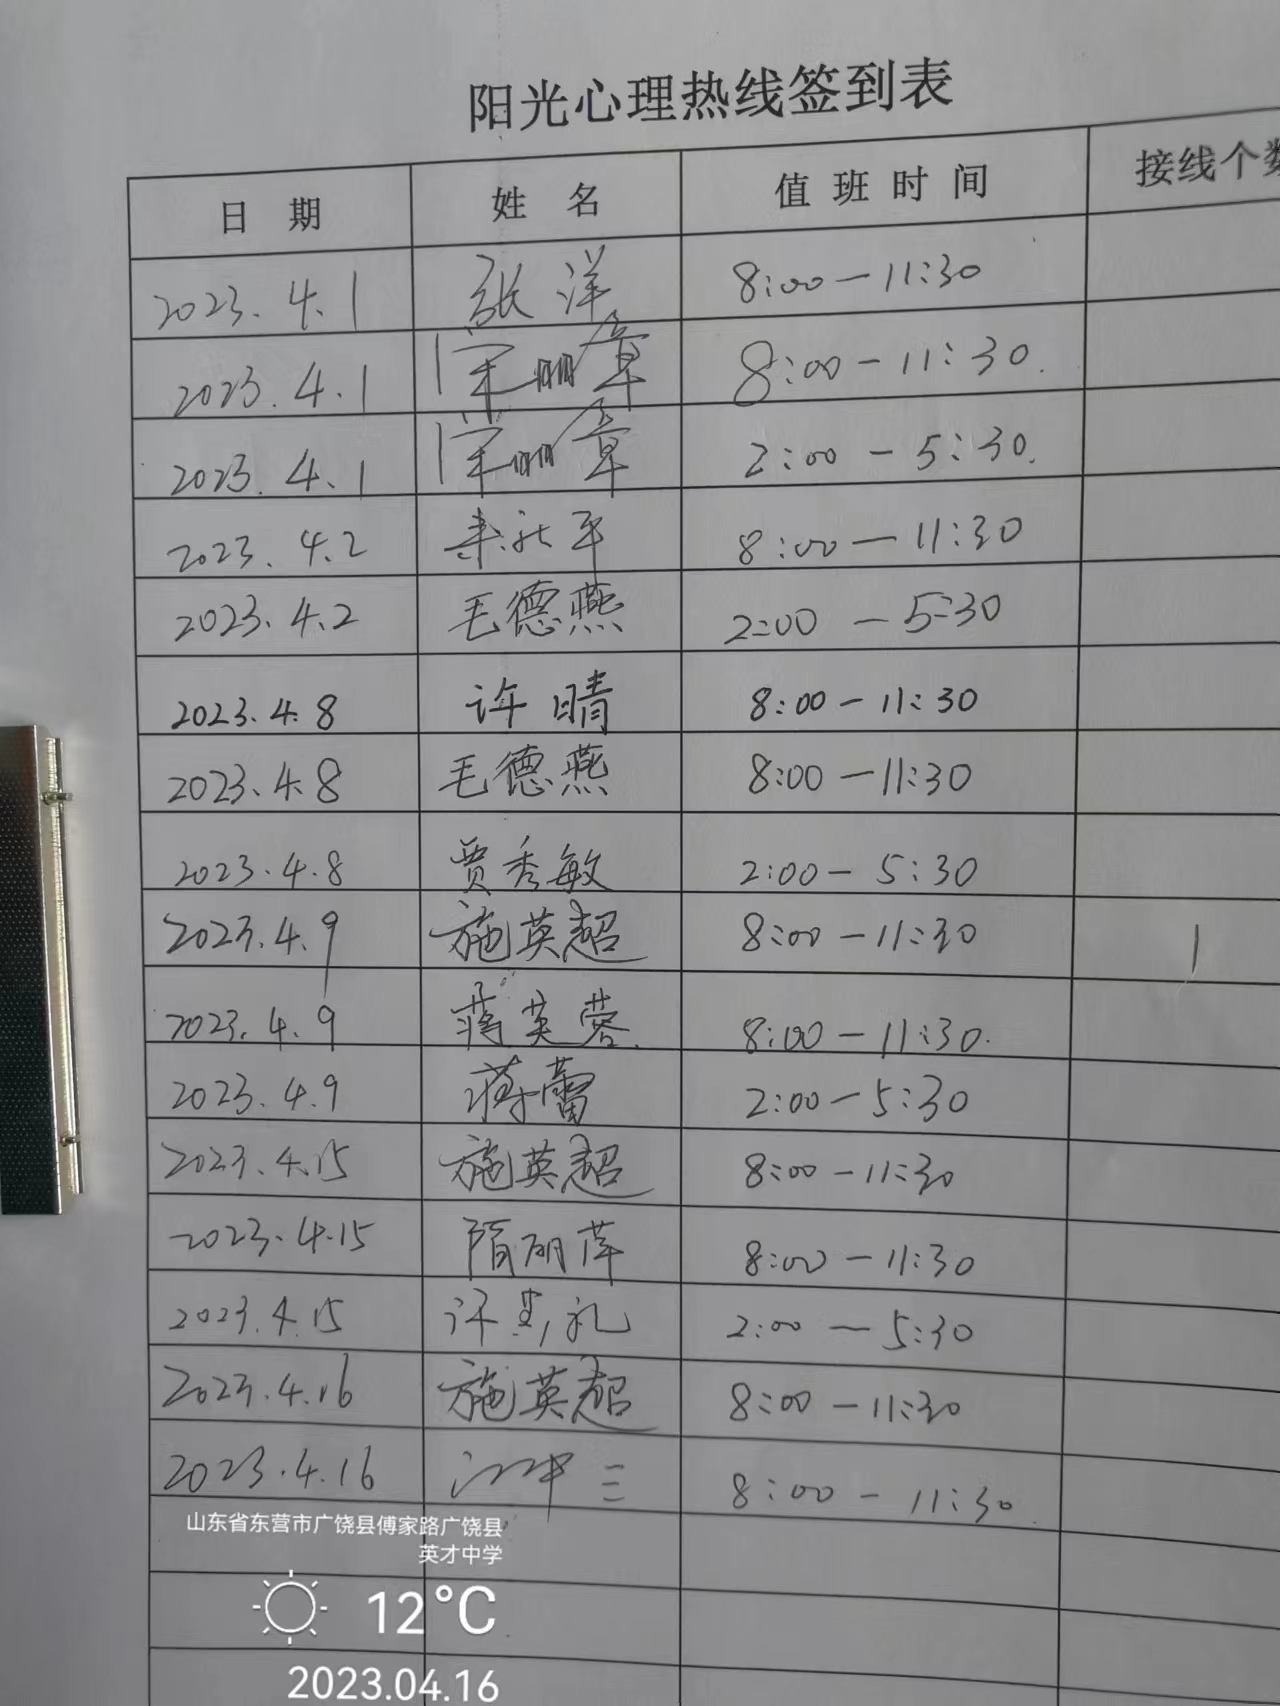 阳光心理热线签到表
日 期 姓 名 值 班 时 间 接线个数
2023.4.1 张洋 8:00-11:30
2023.4.1 8:00-11:30.
2023.4.1 2:00-5:30.
2023.4.2 8:00-11:30
2023.4.2 毛德燕 2:00-5:30
2023.4.8 许晴 8:00-11:30
2023.4.8 毛德燕 8:00-11:30
2023.4.8 贾秀敏 2:00-5:30
2023.4.9 施英超 8:00-11:30 1
2023.4.9 蒋英蓉 8:00-11:30.
2023.4.9 蒋蕾 2:00-5:30
2023.4.15 施英超 8:00-11:30
2023.4.15 隋丽萍 8:00-11:30
2023.4.15 2:00-5:30
2023.4.16 施英超 8:00-11:30
2023.4.16 8:00-11:30.
山东省东营市广饶县傅家路广饶县
英才中学
12°C
2023.04.16